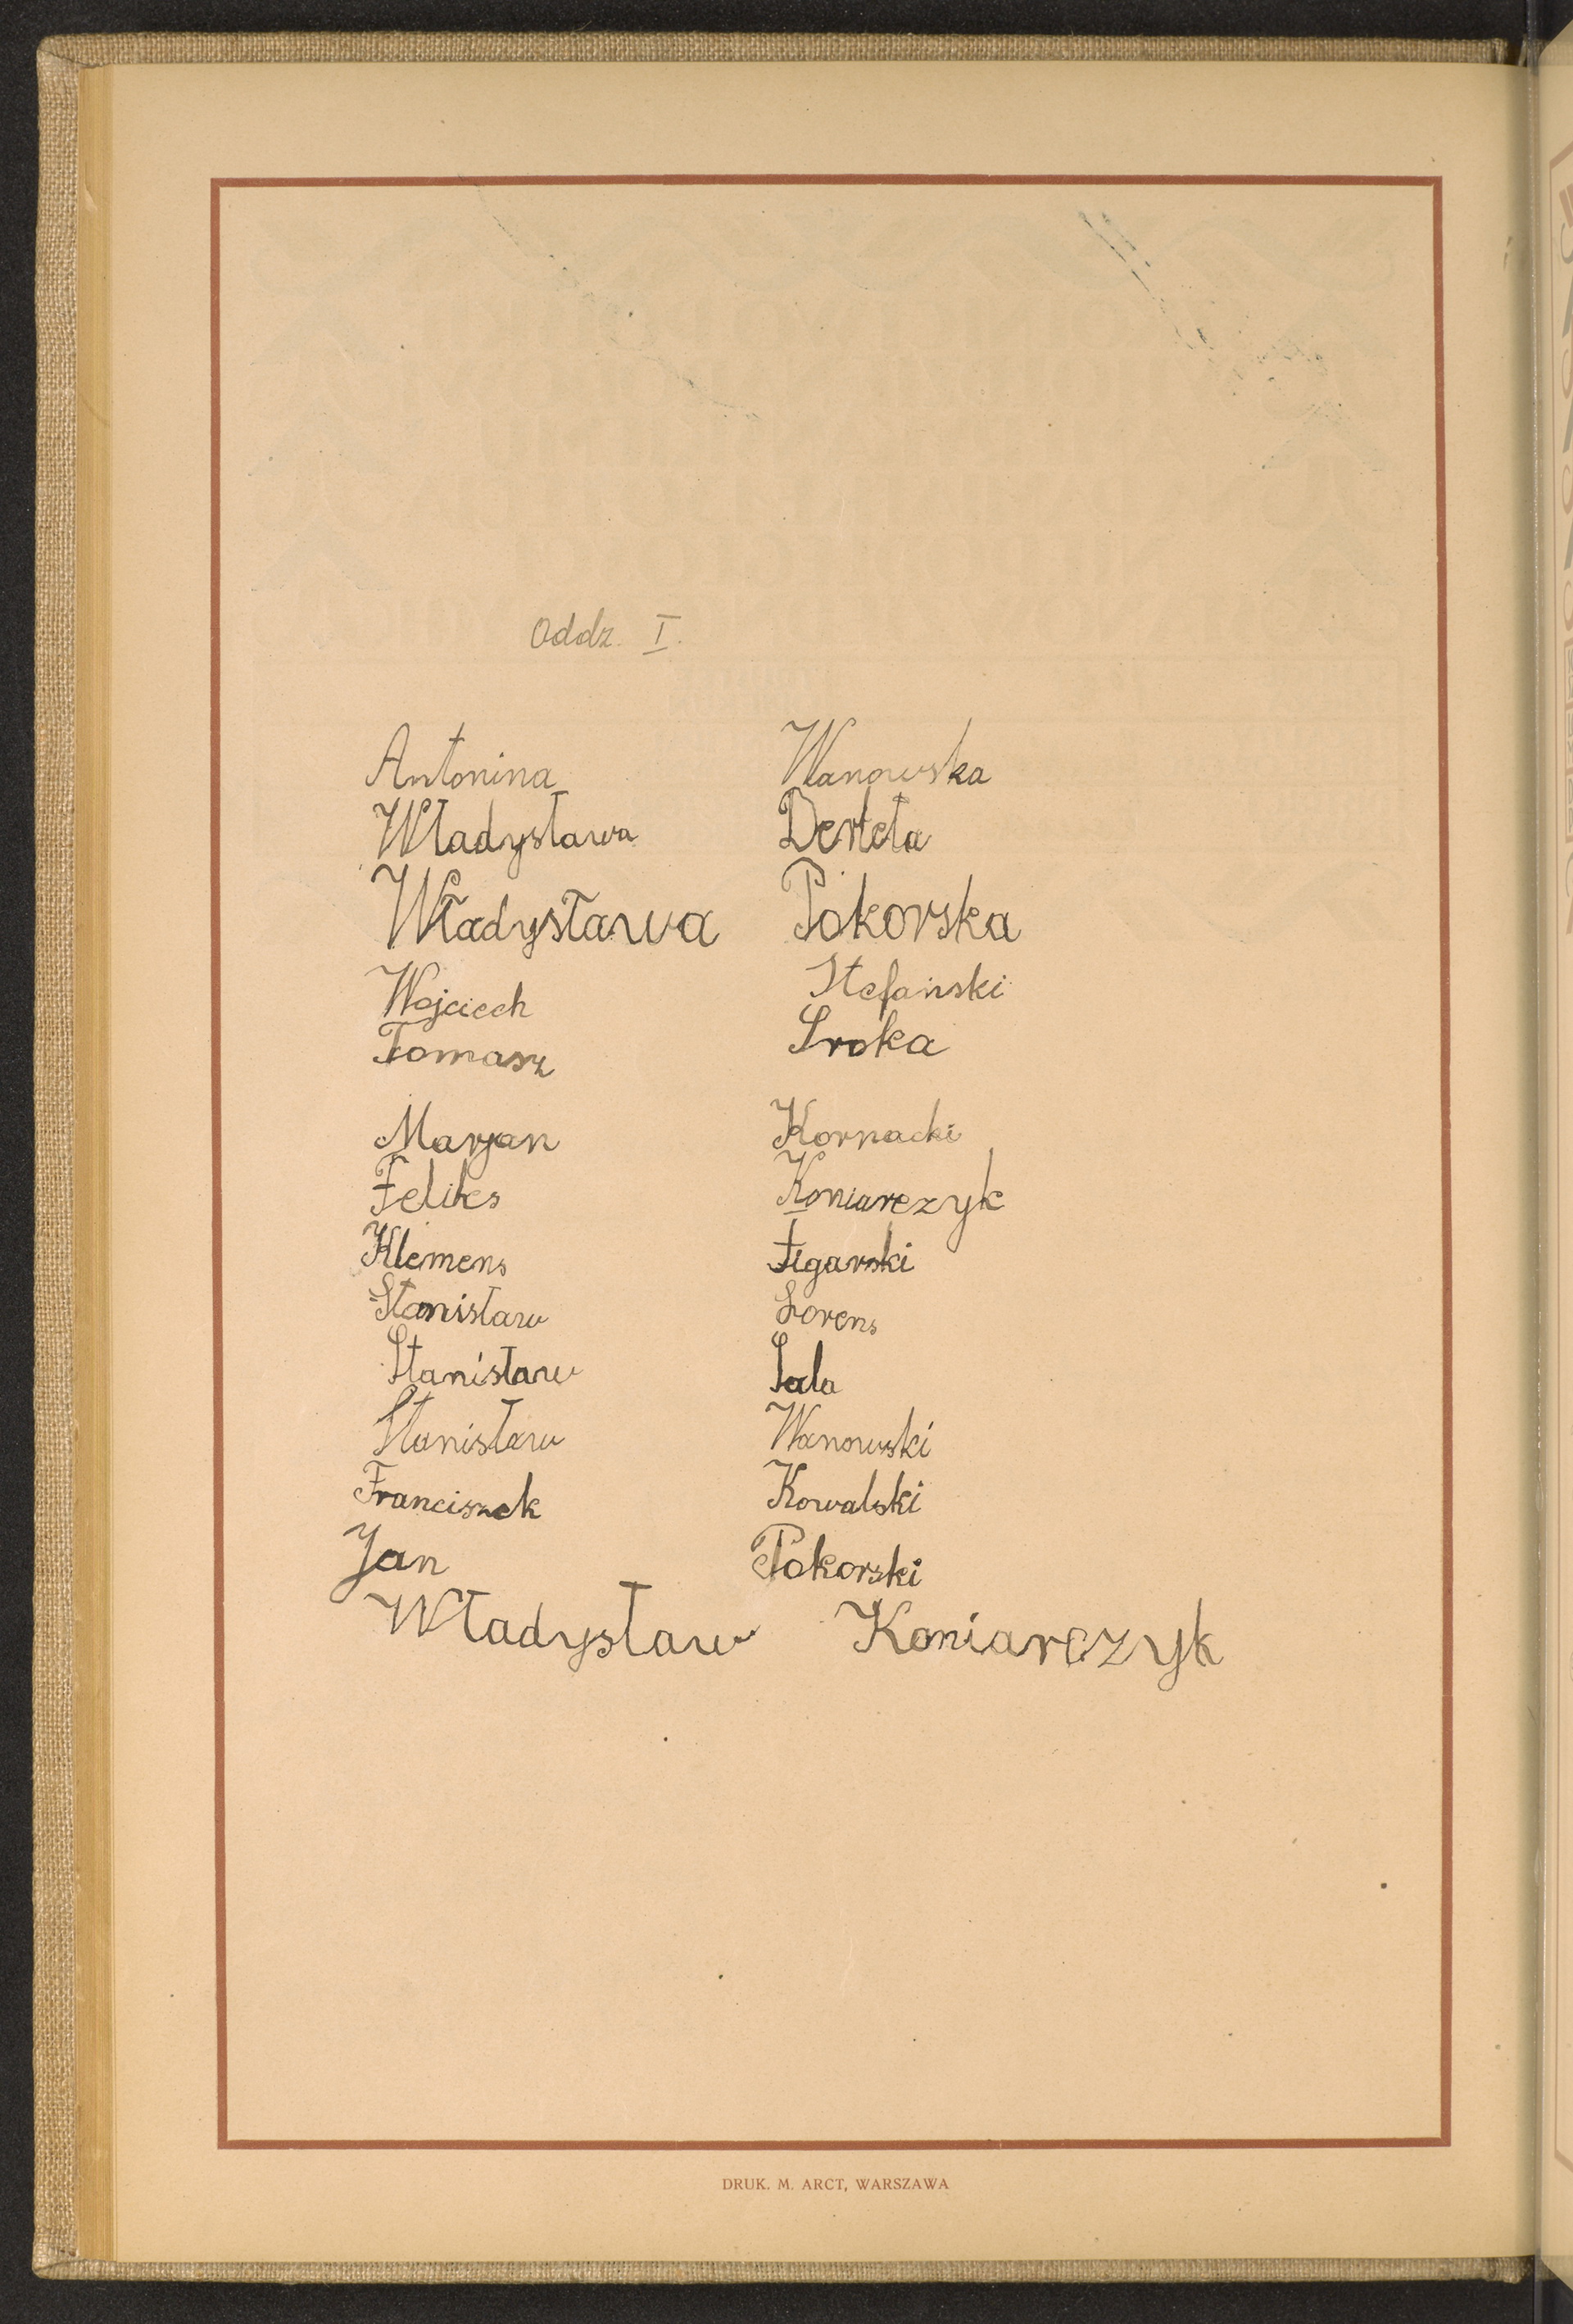 Oddz. I.
Antonina Wanowska
Władysława Derleta
Władysława Pokorska
Wojciech Stefański
Tomasz Sroka
Marjan Kornacki
Feliks Koniarczyk
Klemens Figarski
Stanisław Lorens
Stanisław Sala
Stanisław Wanowski
Franciszek Kowalski
Jan Pokorski
Władysław Koniarczyk
DRUK. M. ARCT, WARSZAWA